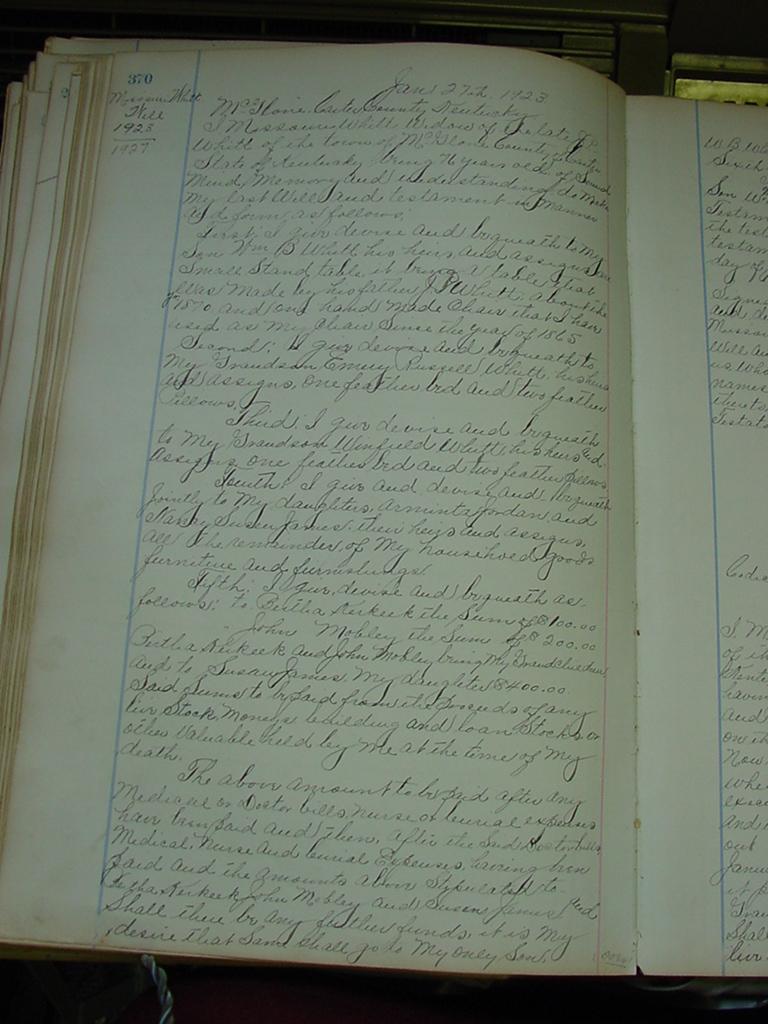 370
Missouri Whitt
Will
1923
1927
Jan 27th, 1923
McGlone Carter County Kentucky
I Missouri Whitt Widow of the late J P
Whitt of the town of McGlone County of Carter
State of Kentucky being 76 years old of Sound
Mind, Memory and understanding do Make
My last Will and testament in Manner
and form as follows:
First: I give devise and bequeath to My
Son Wm B Whitt his heirs and assigns one
Small Stand table it being a table that
Was Made by his father J.P. Whitt about the
of 1870, and one hand Made Chair that I have
used as My Chair Since the year of 1865
Second: I give devise and bequeath to
My Grandson Emery Russell Whitt, his heirs
and assigns, one feather bed and two feather
Pillows.
Third: I give devise and bequeath
to My Grandson Winfield Whitt, his heirs and
Assigns one feather bed and two feather Pillows
Fourth: I give and devise and bequeath
Jointly to My daughters, Arminta Jordan and
Nancy Susan James, their heirs and assigns,
all the remainder of My household goods
furniture and furnishings.
Fifth: I give, devise and bequeath as
follows: to Bertha Kerkeek the Sum of $100.00
" John Mobley the Sum of $200.00
Bertha Kerkeek and John Mobley being My Grandchildren
and to Susan James My daughter $400.00
Said Sums to be paid from the proceeds of any
live Stock, Moneys building and loan Stocks or
other Valuable held by Me at the time of My
death.
The above amount to be paid after any
Medical or Doctor bills, nurse or burial expenses
have been paid and then, after the Said Doctor bills
Medical, Nurse and burial Expenses, having been
paid and the amounts above Stipulated to
Bertha Kerkeek John Mobley and Susan James and
Shall there be any further funds, it is My
desire that Same Shall go to My only Son,
over
W B Wh
Sixth
Son W
Testam
the test
testam
day of
Signed
and de
Missou
Will an
us who
names
thereto
Testat
Codic
I M
of th
Kentu
having
and
on th
Now
whe
execu
and
out
Janua
it p
Gran
Shall
live